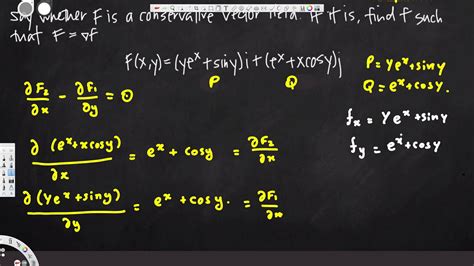 say whether F is a conservative vector field. If it is, find f such
that F = ∇f
F(x,y) = (ye^x + siny)i + (e^x + xcosy)j
P Q
P = ye^x + siny
Q = e^x + cosy.
∂F₂/∂x - ∂F₁/∂y = 0
f_x = ye^x + siny
f_y = e^x + cosy
∂(e^x + xcosy)/∂x = e^x + cosy = ∂F₂/∂x
∂(ye^x + siny)/∂y = e^x + cosy. = ∂F₁/∂x